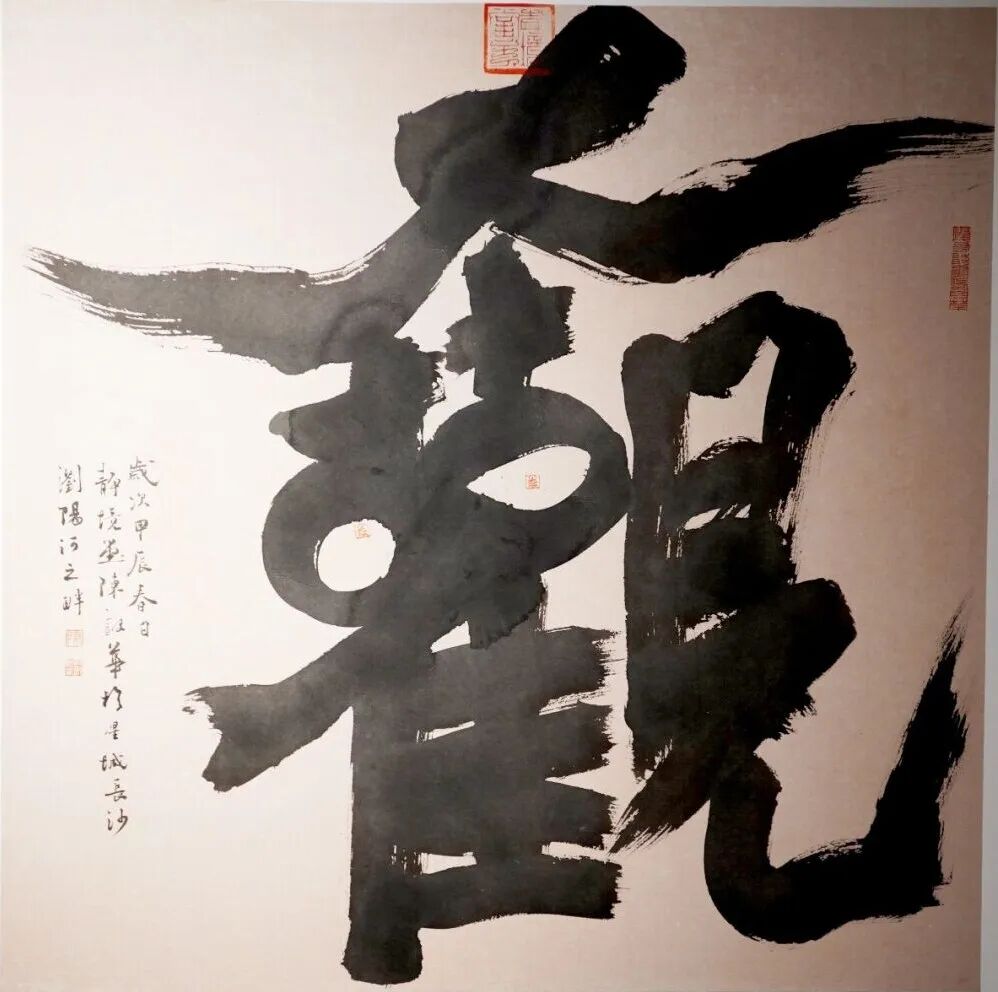 大觀
歲次甲辰春日
靜境陳華於星城長沙
瀏陽河之畔